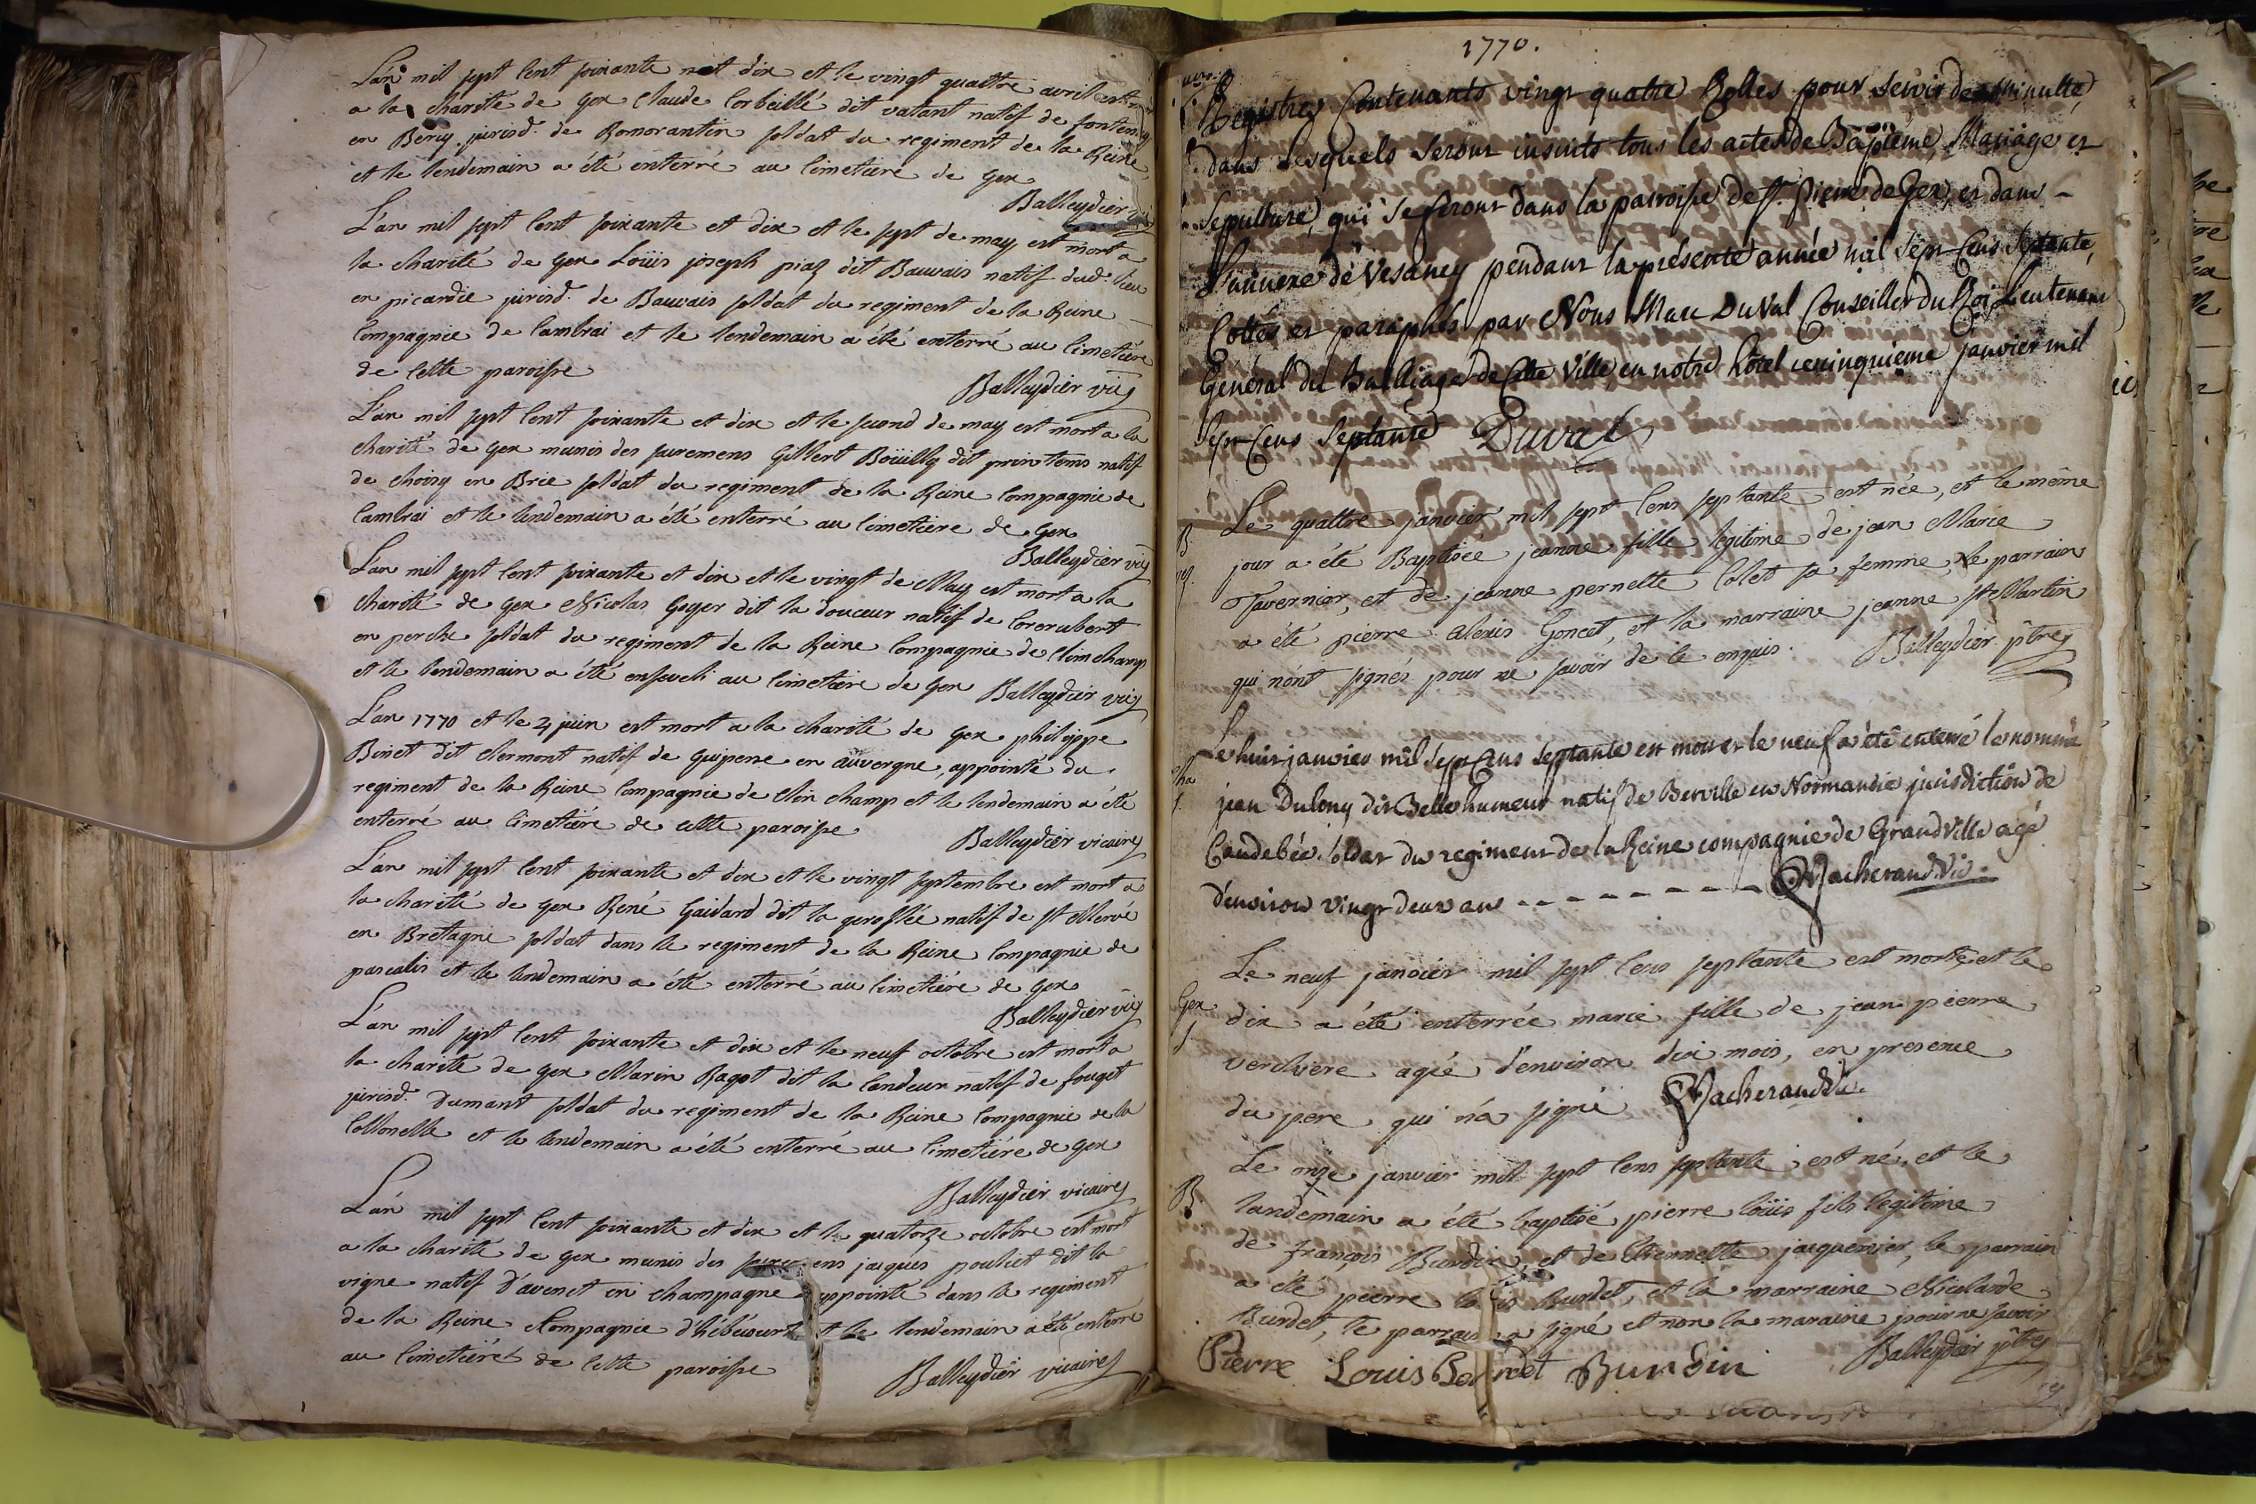 L'an mil sept cent soixante et dix et le vingt quattre avril est
a la charité de gex claude Corbeillé dit vatant natif de fonten
en Berry jurisd. de Romorantin soldat du regiment de la Reine
et le lendemain a été enterré au cimetiere de gex
Balleydier
L'an mil sept cent soixante et dix et le sept de may est mort a
la charité de gex Loüis joseph piaz dit Bauvais natif dud. lieu
en picardie jurisd. de Bauvais soldat du regiment de la Reine
Compagnie de Cambrai et le lendemain a été enterré au cimetiere
de cette paroisse
Balleydier vic
L'an mil sept cent soixante et dix et le second de may est mort a la
charité de gex munis des sacremens Gillert Boüilly dit printems natif
de choisy en Brie soldat du regiment de la Reine Compagnie de
Cambrai et le lendemain a été enterré au cimetiere de gex
Balleydier vic
L'an mil sept cent soixante et dix et le vingt de May est mort a la
charité de gex Nicolas Goyer dit la douceur natif de Corerubert
en perche soldat du regiment de la Reine Compagnie de Clinchamp
et le lendemain a été enseveli au cimetiere de gex Balleydier vic
L'an 1770 et le 4 juin est mort a la charité de gex philippe
Binet dit clermont natif de guipere en auvergne, appointé du
regiment de la Reine Compagnie de Clin champ et le lendemain a été
enterré au cimetiére de cette paroisse
Balleydier vicaire
L'an mil sept cent soixante et dix et le vingt septembre est mort a
la charité de gex René Gaidard dit la geroflée natif de st Mervé
en Bretagne soldat dans le regiment de la Reine Compagnie de
pascalis et le lendemain a été enterré au cimetiére de gex
Balleydier vic
L'an mil sept cent soixante et dix et le neuf octobre est mort a
la charité de gex Marin Ragot dit la Candeur natif de fouget
jurisd. Dumant soldat du regiment de la Reine Compagnie de la
Collonelle et le lendemain a été enterré au cimetiére de gex
Balleydier vicaire
L'an mil sept cent soixante et dix et le quatorze octobre est mort
a la charité de gex munis des jacques pouliet dit la
vigne natif d'avenet en champagne appointé dans le regiment
de la Reine Compagnie d'hébécourt et le lendemain a été enterré
au cimetiére de cette paroisse
Balleydier vicaire
1770.
Registres Contenants vingt quatre Rolles pour servir de minutte,
dans lesquels seront inscrits tous les actes de Bapteme, Mariage et
Sepulture, qui se feront dans la parroisse de St. Pierre de Gex, et dans
l'annexe de Vesancy pendant la présente année mil sept Cens septante,
Cottés et paraphés par Nous Marc Duval Conseiller du Roi, Lieutenant
Général du Bailliage de Cette Ville en notre hôtel ce cinquieme janvier mil
sept Cens septante Duval
B. Le quattre janvier mil sept cens septante est née, et le même
jour a été Baptisée jeanne fille legitime de jean Marie
Tavernier, et de jeanne pernette Colet sa femme, le parrain
a été pierre alexis Goncet, et la marraine jeanne st Martin
qui n'ont signés pour ne savoir de ce enquis. Balleydier ptre
Le huit janvier mil sept Cens septante est mort et le neuf a été enterré le nommé
jean Dulong dit Belle humeur natif de Berville en Normandie jurisdiction de
Caudebéc soldat du regiment de la Reine compagnie de Grandville agé
d'environ vingt deux ans - - - - - - - Vacherand Vic.
Le neuf janvier mil sept cens septante est morte et le
Gex dix a été enterrée marie fille de jean pierre
verchere agée d'environ dix mois, en presence
du pere qui n'a signé Vacherand Vic.
Le onze janvier mil sept cens septante est né, et le
B. landemain a été baptisé pierre loüis fils legitime
de françois Burdin, et de Etiennette jacquenier, le parrain
a été pierre louis Burdet, et la marraine Nicolarde
Burdet, le parrain a signé et non la maraine pour ne savoir
Pierre Louis Bourdet Burdin Balleydier ptre